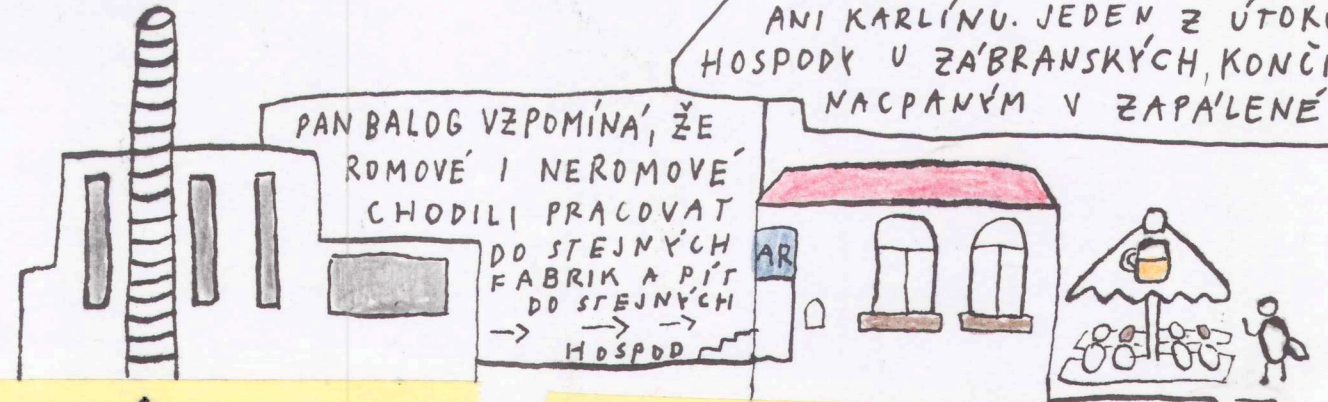 ANI KARLÍNU. JEDEN Z
HOSPODY U ZÁBRANSKÝCH, KONČÍ
NACPANÝM V ZAPÁLENÉ
PAN BALOG VZPOMÍNÁ, ŽE
ROMOVÉ I NEROMOVÉ
CHODILI PRACOVAT
DO STEJNÝCH
FABRIK A PÍT
DO STEJNÝCH
HOSPOD
AR